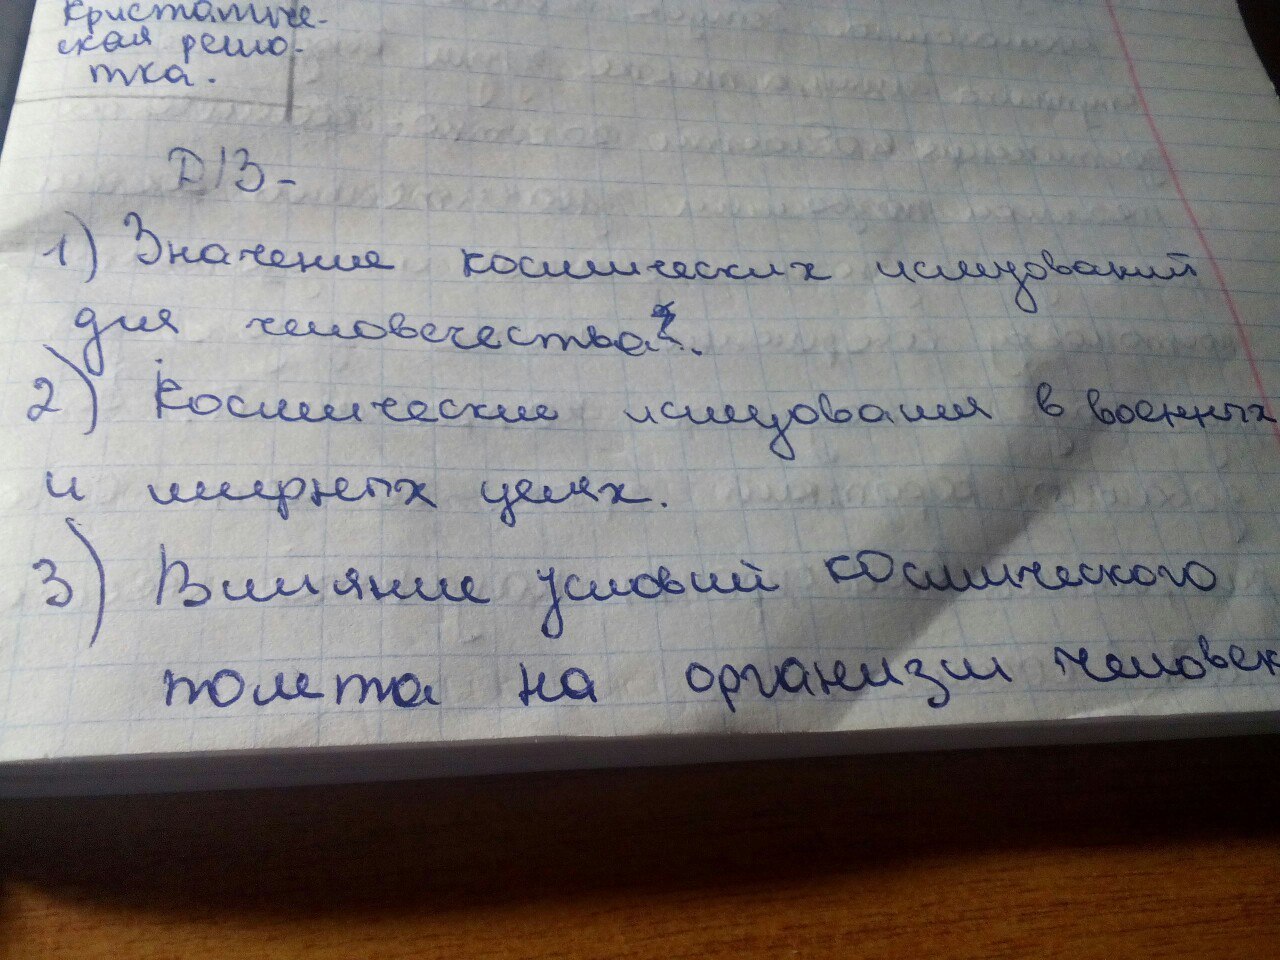 кристаличе-
ская решо-
тка.
Д/З-
1) Значение космических иследований
для человечества?.
2) Космические иследования в военных
и мирных целях.
3) Влияние условий космического
полета на организм человек